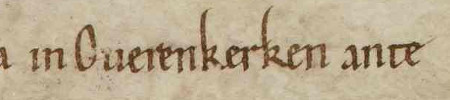 a in Ouerenkerken ante